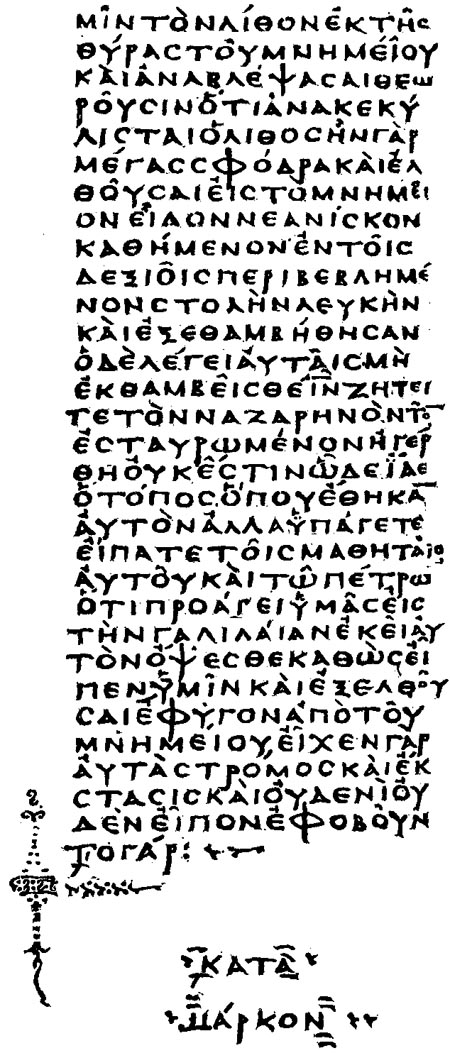 ΜΙΝΤΟΝΛΙΘΟΝΕΚΤΗϹ
ΘΥΡΑϹΤΟΥΜΝΗΜΕΙΟΥ
ΚΑΙΑΝΑΒΛΕΨΑϹΑΙΘΕΩ
ΡΟΥϹΙΝΟΤΙΑΝΑΚΕΚΥ
ΛΙϹΤΑΙΟΛΙΘΟϹΗΝΓΑΡ
ΜΕΓΑϹϹΦΟΔΡΑΚΑΙΕΛ
ΘΟΥϹΑΙΕΙϹΤΟΜΝΗΜΕΙ
ΟΝΕΙΔΟΝΝΕΑΝΙϹΚΟΝ
ΚΑΘΗΜΕΝΟΝΕΝΤΟΙϹ
ΔΕΞΙΟΙϹΠΕΡΙΒΕΒΛΗΜΕ
ΝΟΝϹΤΟΛΗΝΛΕΥΚΗΝ
ΚΑΙΕΞΕΘΑΜΒΗΘΗϹΑΝ
ΟΔΕΛΕΓΕΙΑΥΤΑΙϹΜΗ
ΕΚΘΑΜΒΕΙϹΘΕΙΝΖΗΤΕΙ
ΤΕΤΟΝΝΑΖΑΡΗΝΟΝΤΟ̅
ΕϹΤΑΥΡΩΜΕΝΟΝΗΓΕΡ
ΘΗΟΥΚΕϹΤΙΝΩΔΕΪΔΕ
ΟΤΟΠΟϹΟΠΟΥΕΘΗΚΑ̅
ΑΥΤΟΝΑΛΛΑΥΠΑΓΕΤΕ
ΕΙΠΑΤΕΤΟΙϹΜΑΘΗΤΑΙϹ
ΑΥΤΟΥΚΑΙΤΩΠΕΤΡΩ
ΟΤΙΠΡΟΑΓΕΙΥΜΑϹΕΙϹ
ΤΗΝΓΑΛΙΛΑΙΑΝΕΚΕΙΑΥ
ΤΟΝΟΨΕϹΘΕΚΑΘΩϹΕΙ
ΠΕΝΥΜΙΝΚΑΙΕΞΕΛΘΟΥ
ϹΑΙΕΦΥΓΟΝΑΠΟΤΟΥ
ΜΝΗΜΕΙΟΥΕΙΧΕΝΓΑΡ
ΑΥΤΑϹΤΡΟΜΟϹΚΑΙΕΚ
ϹΤΑϹΙϹΚΑΙΟΥΔΕΝΙΟΥ
ΔΕΝΕΙΠΟΝΕΦΟΒΟΥΝ
ΤΟΓΑΡ:
ΚΑΤΑ
ΜΑΡΚΟΝ